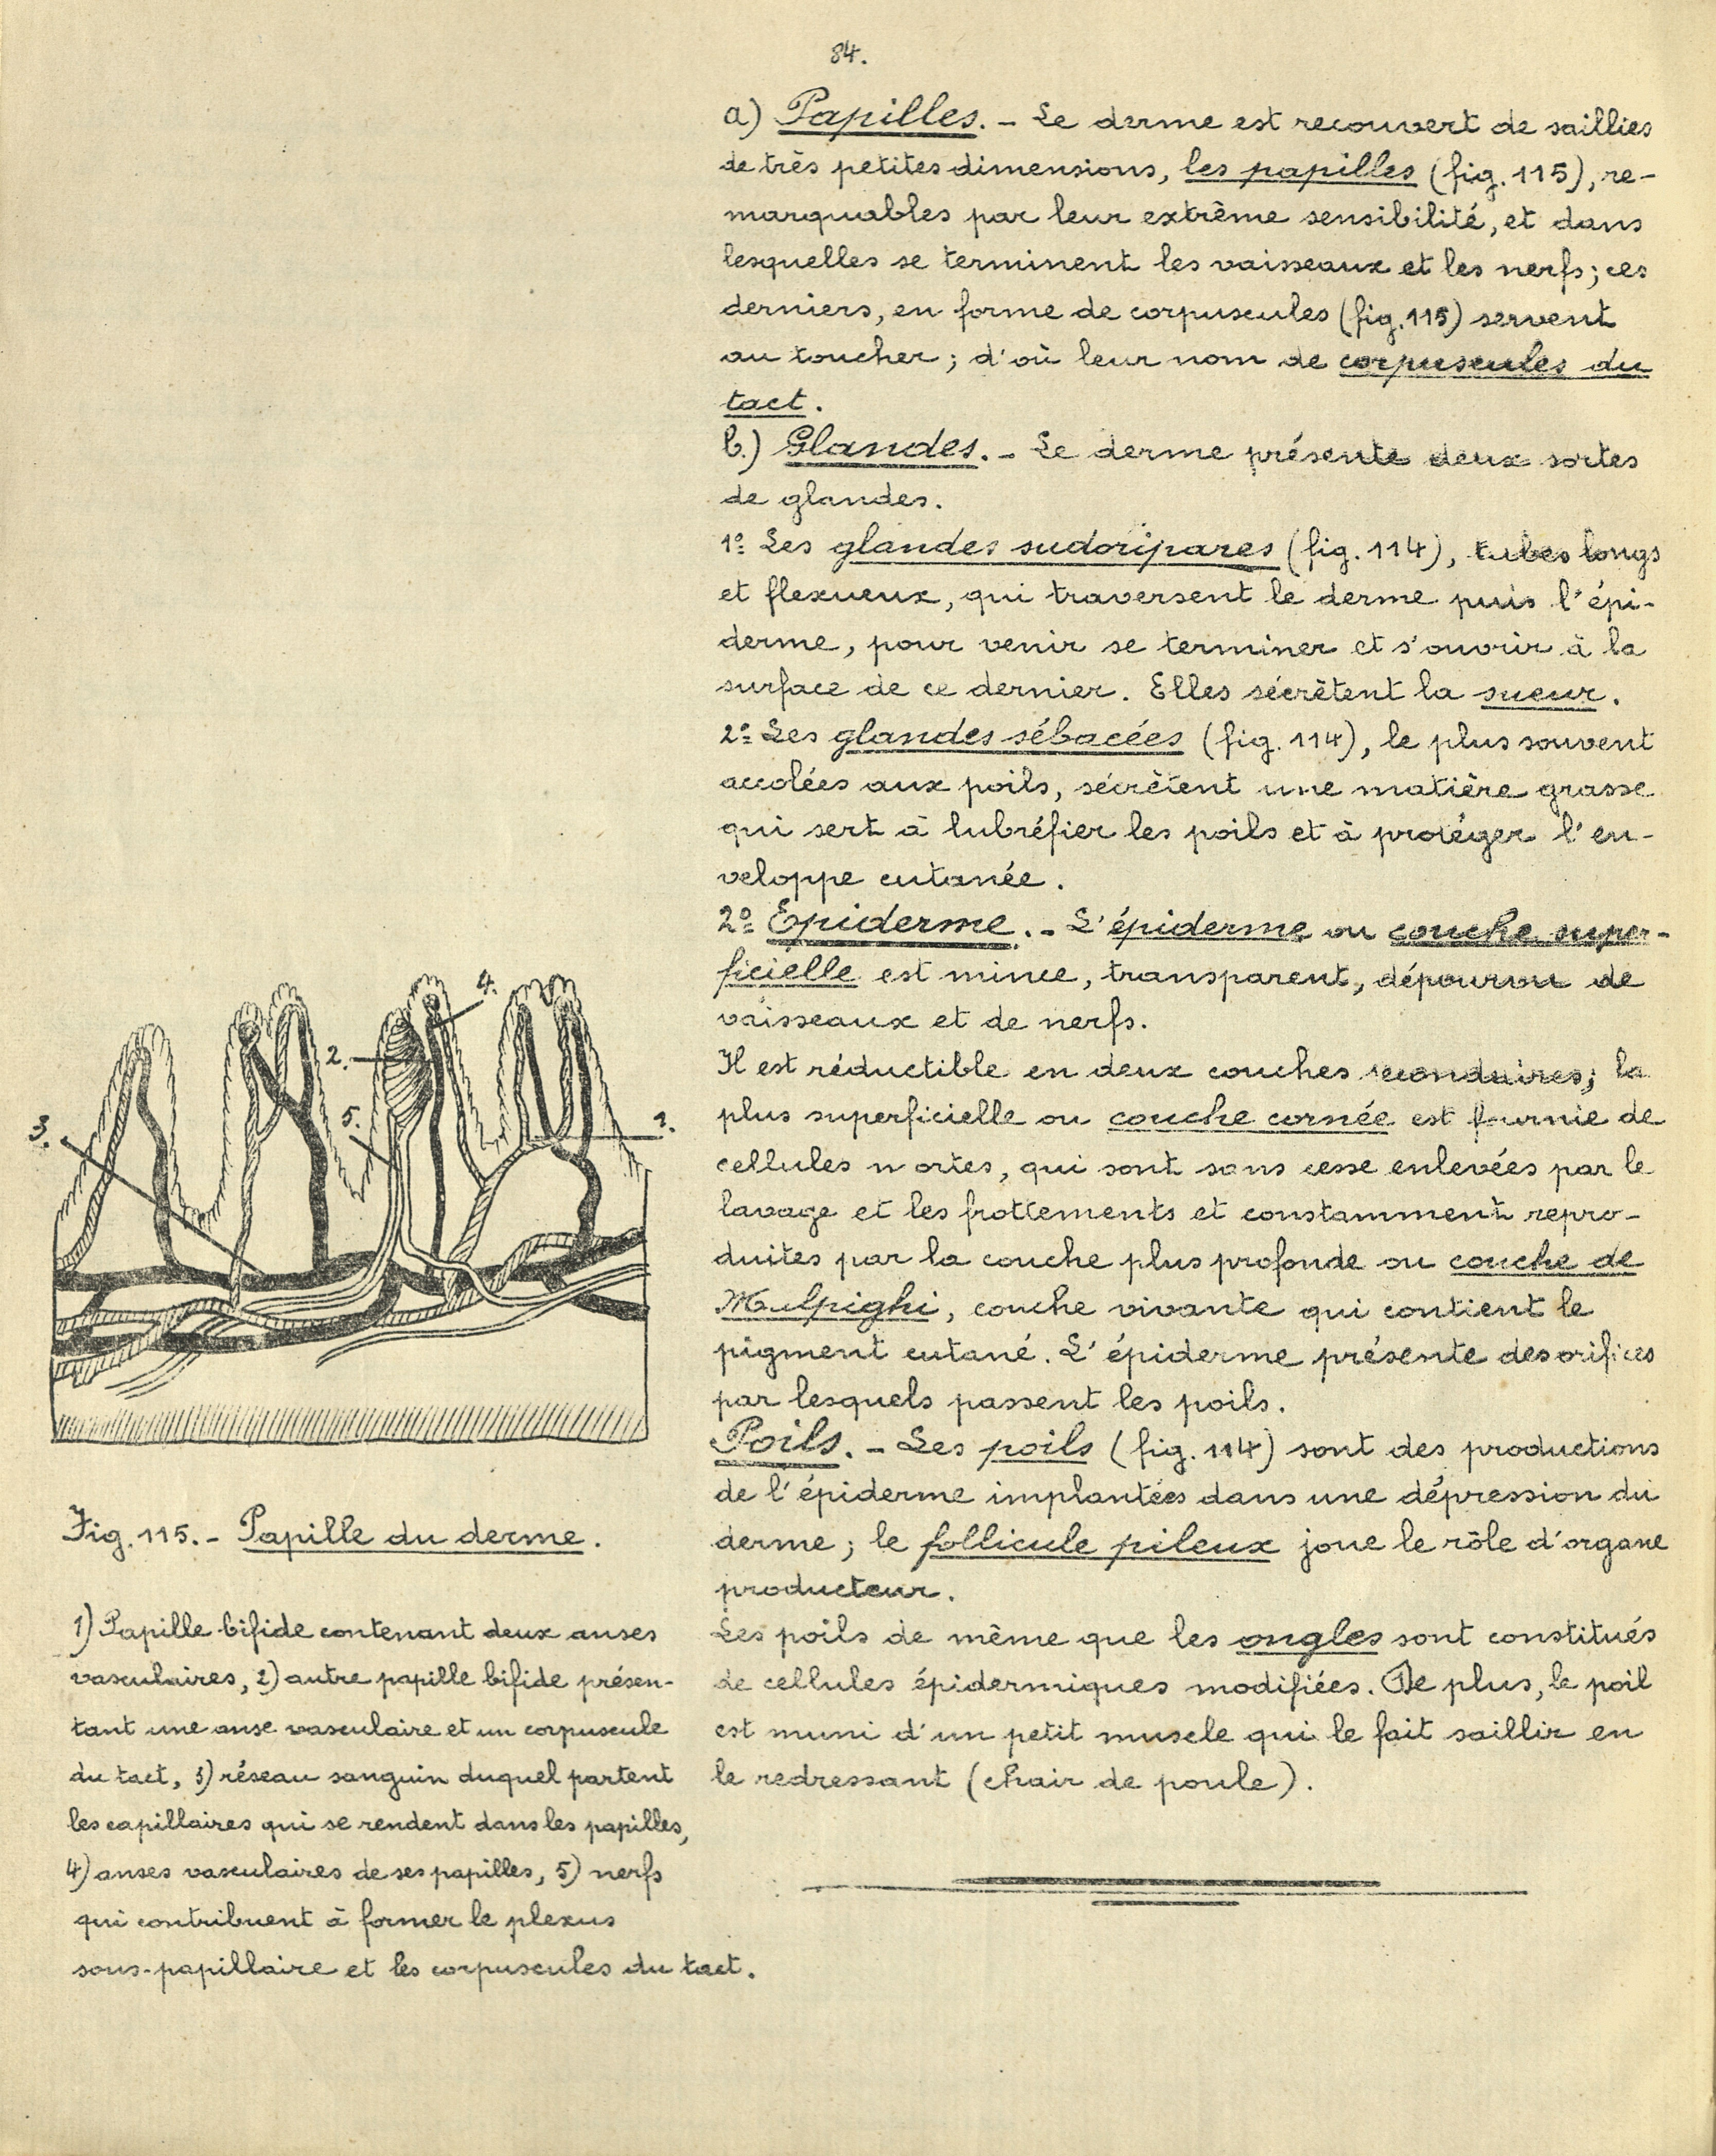 84.
a) Papilles. - Le derme est recouvert de saillies
de très petites dimensions, les papilles (fig. 115), re-
marquables par leur extrême sensibilité, et dans
lesquelles se terminent les vaisseaux et les nerfs; ces
derniers, en forme de corpuscules (fig. 115) servent
au toucher; d'où leur nom de corpuscules du
tact.
b.) Glandes. - Le derme présente deux sortes
de glandes.
1º Les glandes sudoripares (fig. 114), tubes longs
et flexueux, qui traversent le derme puis l'épi-
derme, pour venir se terminer et s'ouvrir à la
surface de ce dernier. Elles sécrètent la sueur.
2º Les glandes sébacées (fig. 114), le plus souvent
accolées aux poils, sécrètent une matière grasse
qui sert à lubréfier les poils et à protéger l'en-
veloppe cutanée.
2º Epiderme. - L'épiderme ou couche super-
ficielle est mince, transparent, dépourvu de
vaisseaux et de nerfs.
Il est réductible en deux couches secondaires; la
plus superficielle ou couche cornée est fournie de
cellules mortes, qui sont sans cesse enlevées par le
lavage et les frottements et constamment repro-
duites par la couche plus profonde ou couche de
Malpighi, couche vivante qui contient le
pigment cutané. L'épiderme présente des orifices
par lesquels passent les poils.
Poils. - Les poils (fig. 114) sont des productions
de l'épiderme implantées dans une dépression du
derme; le follicule pileux joue le rôle d'organe
producteur.
Les poils de même que les ongles sont constitués
de cellules épidermiques modifiées. De plus, le poil
est muni d'un petit muscle qui le fait saillir en
le redressant (chair de poule).
4.
2.
5.
3.
1.
Fig. 115. - Papille du derme.
1) Papille bifide contenant deux anses
vasculaires, 2) autre papille bifide présen-
tant une anse vasculaire et un corpuscule
du tact, 3) réseau sanguin duquel partent
les capillaires qui se rendent dans les papilles,
4) anses vasculaires de ses papilles, 5) nerfs
qui contribuent à former le plexus
sous-papillaire et les corpuscules du tact.